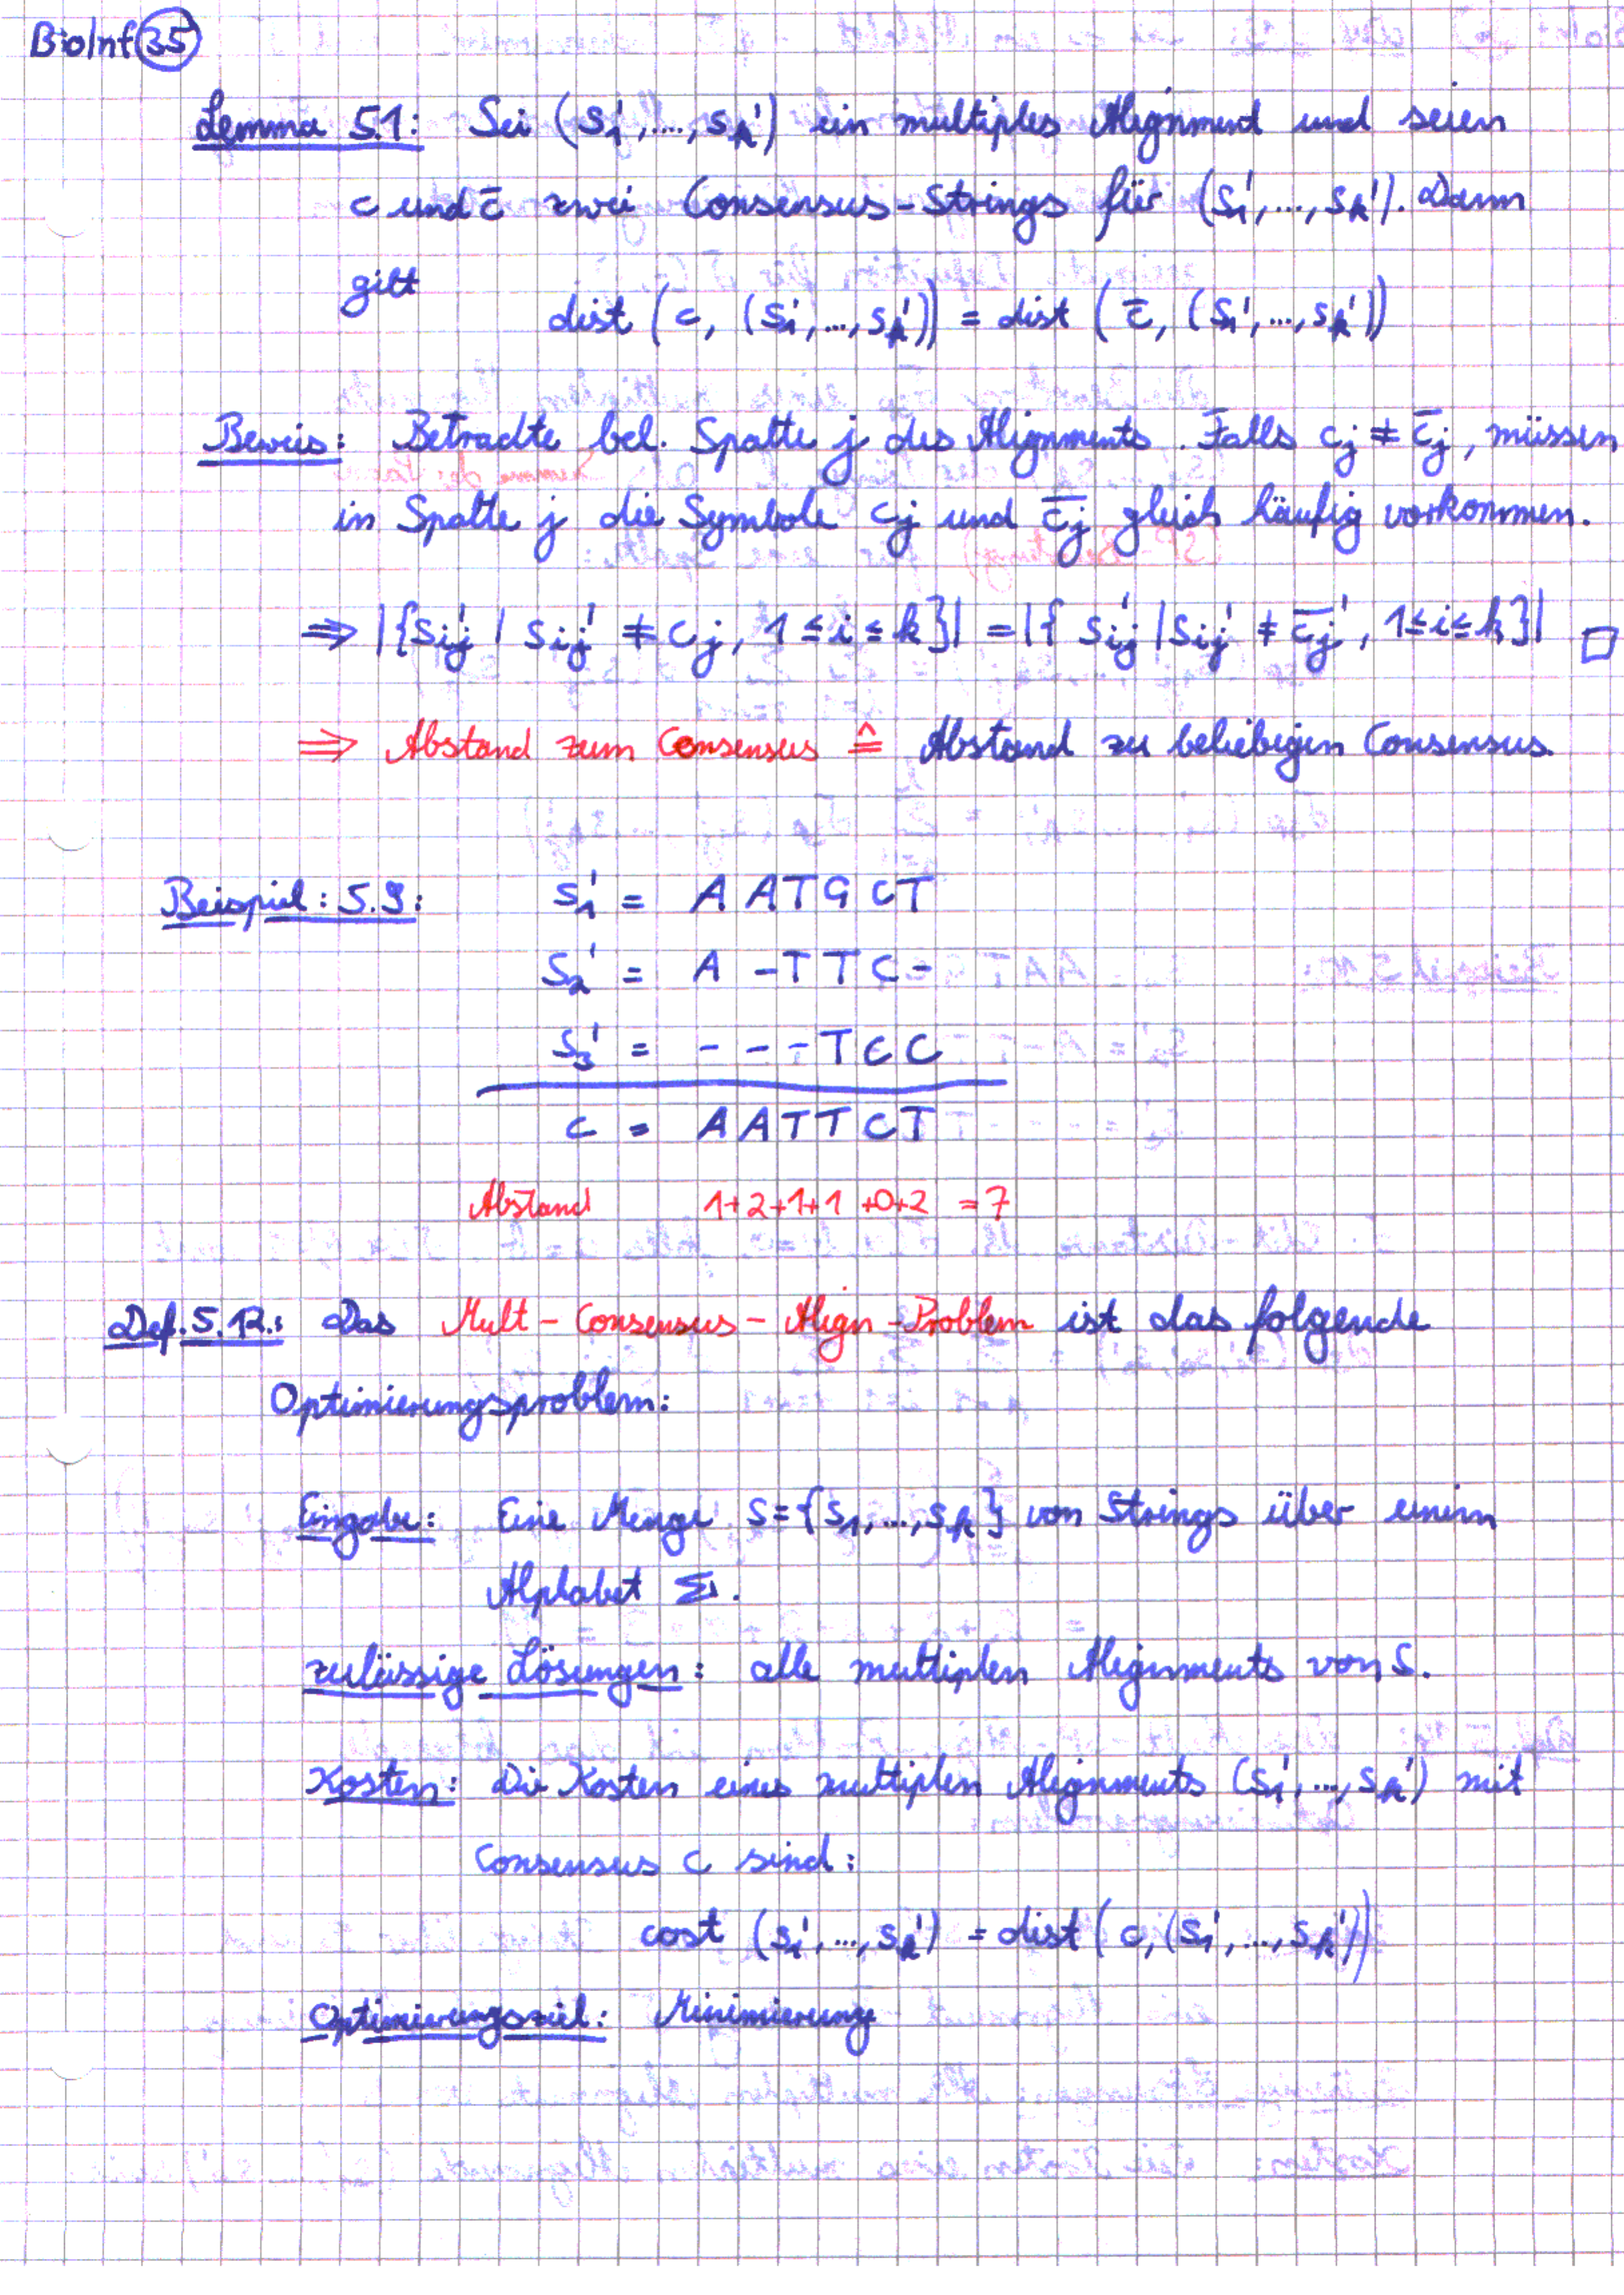 BioInf 35
Lemma 5.1: Sei (s₁',...,sₖ') ein multiples Alignment und seien
c und c̄ zwei Consensus-Strings für (s₁',...,sₖ'). Dann
gilt
dist (c, (s₁',...,sₖ')) = dist (c̄, (s₁',...,sₖ'))
Beweis: Betrachte bel. Spalte j des Alignments. Falls cⱼ ≠ c̄ⱼ, müssen
in Spalte j die Symbole cⱼ und c̄ⱼ gleich häufig vorkommen.
⇒ |{sᵢⱼ' | sᵢⱼ' ≠ cⱼ, 1≤i≤k}| = |{sᵢⱼ' | sᵢⱼ' ≠ c̄ⱼ', 1≤i≤k}| □
⇒ Abstand zum Consensus ≙ Abstand zu beliebigen Consensus.
Beispiel: 5.9: s₁' = A A T G C T
s₂' = A - T T C -
s₃' = - - - T C C
c = A A T T C T
Abstand 1+2+1+1+0+2 = 7
Def. 5.12.: Das Mult-Consensus-Align-Problem ist das folgende
Optimierungsproblem:
Eingabe: Eine Menge S={s₁,...,sₖ} von Strings über einem
Alphabet Σ.
zulässige Lösungen: alle multiplen Alignments von S.
Kosten: Die Kosten eines multiplen Alignments (s₁',...,sₖ') mit
Consensus c sind:
cost (s₁',...,sₖ') = dist (c, (s₁',...,sₖ'))
Optimierungsziel: Minimierung